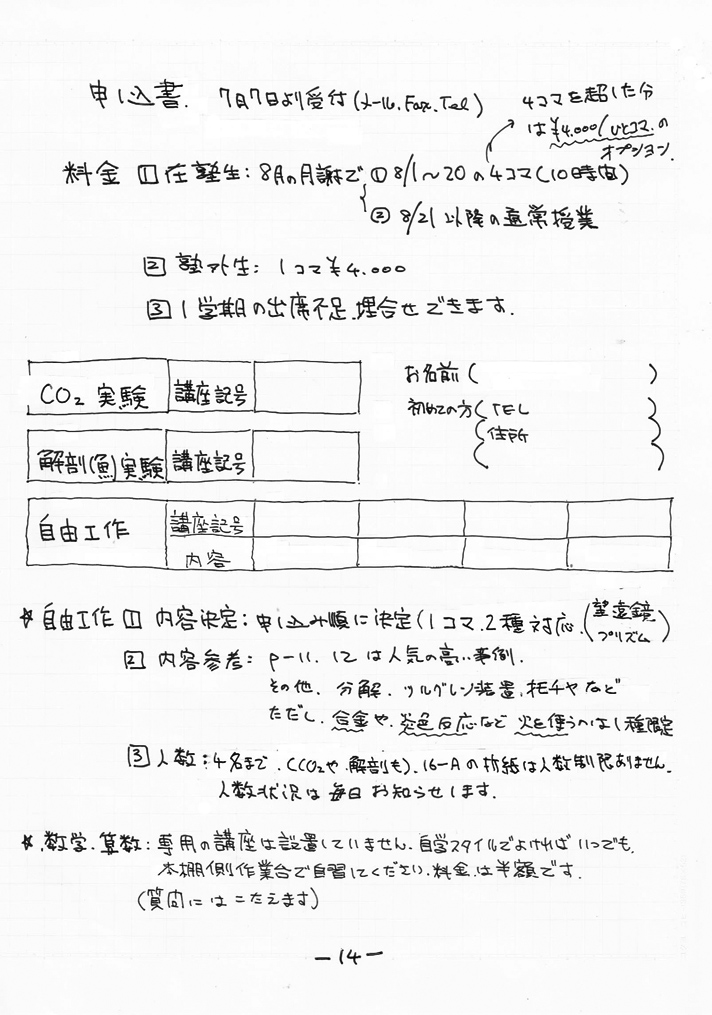 申し込書. 7月7日より受付(メール.Fax.Tel)
4コマを超した分
は¥4.000/ひとコマ.の
オプション.
料金 1 在塾生: 8月の月謝で ① 8/1〜20の4コマ(10時間)
② 8/21以降の通常授業
2 塾外生: 1コマ¥4.000
3 1学期の出席不足.埋合せできます.
お名前 ( )
初めての方 ( TEL )
( 住所 )
CO₂ 実験 講座記号
解剖(魚)実験 講座記号
自由工作 講座記号
内容
☆自由工作 1 内容決定: 申し込み順に決定(1コマ.2種対応.(望遠鏡
プリズム)
2 内容参考: P-11. 12は人気の高い事例.
その他. 分解. ツルグレン装置.オモチャなど
ただし.合金や.炎色反応など 火を使うのは1種限定
3 人数: 4名まで.(CO₂や.解剖も). 16-Aの折紙は人数制限ありません.
人数状況は毎日お知らせします.
☆.数学.算数: 専用の講座は設置していません.自習スタイルでよければいつでも.
本棚側作業台で自習してください.料金は半額です.
(質問にはこたえます)
-14-